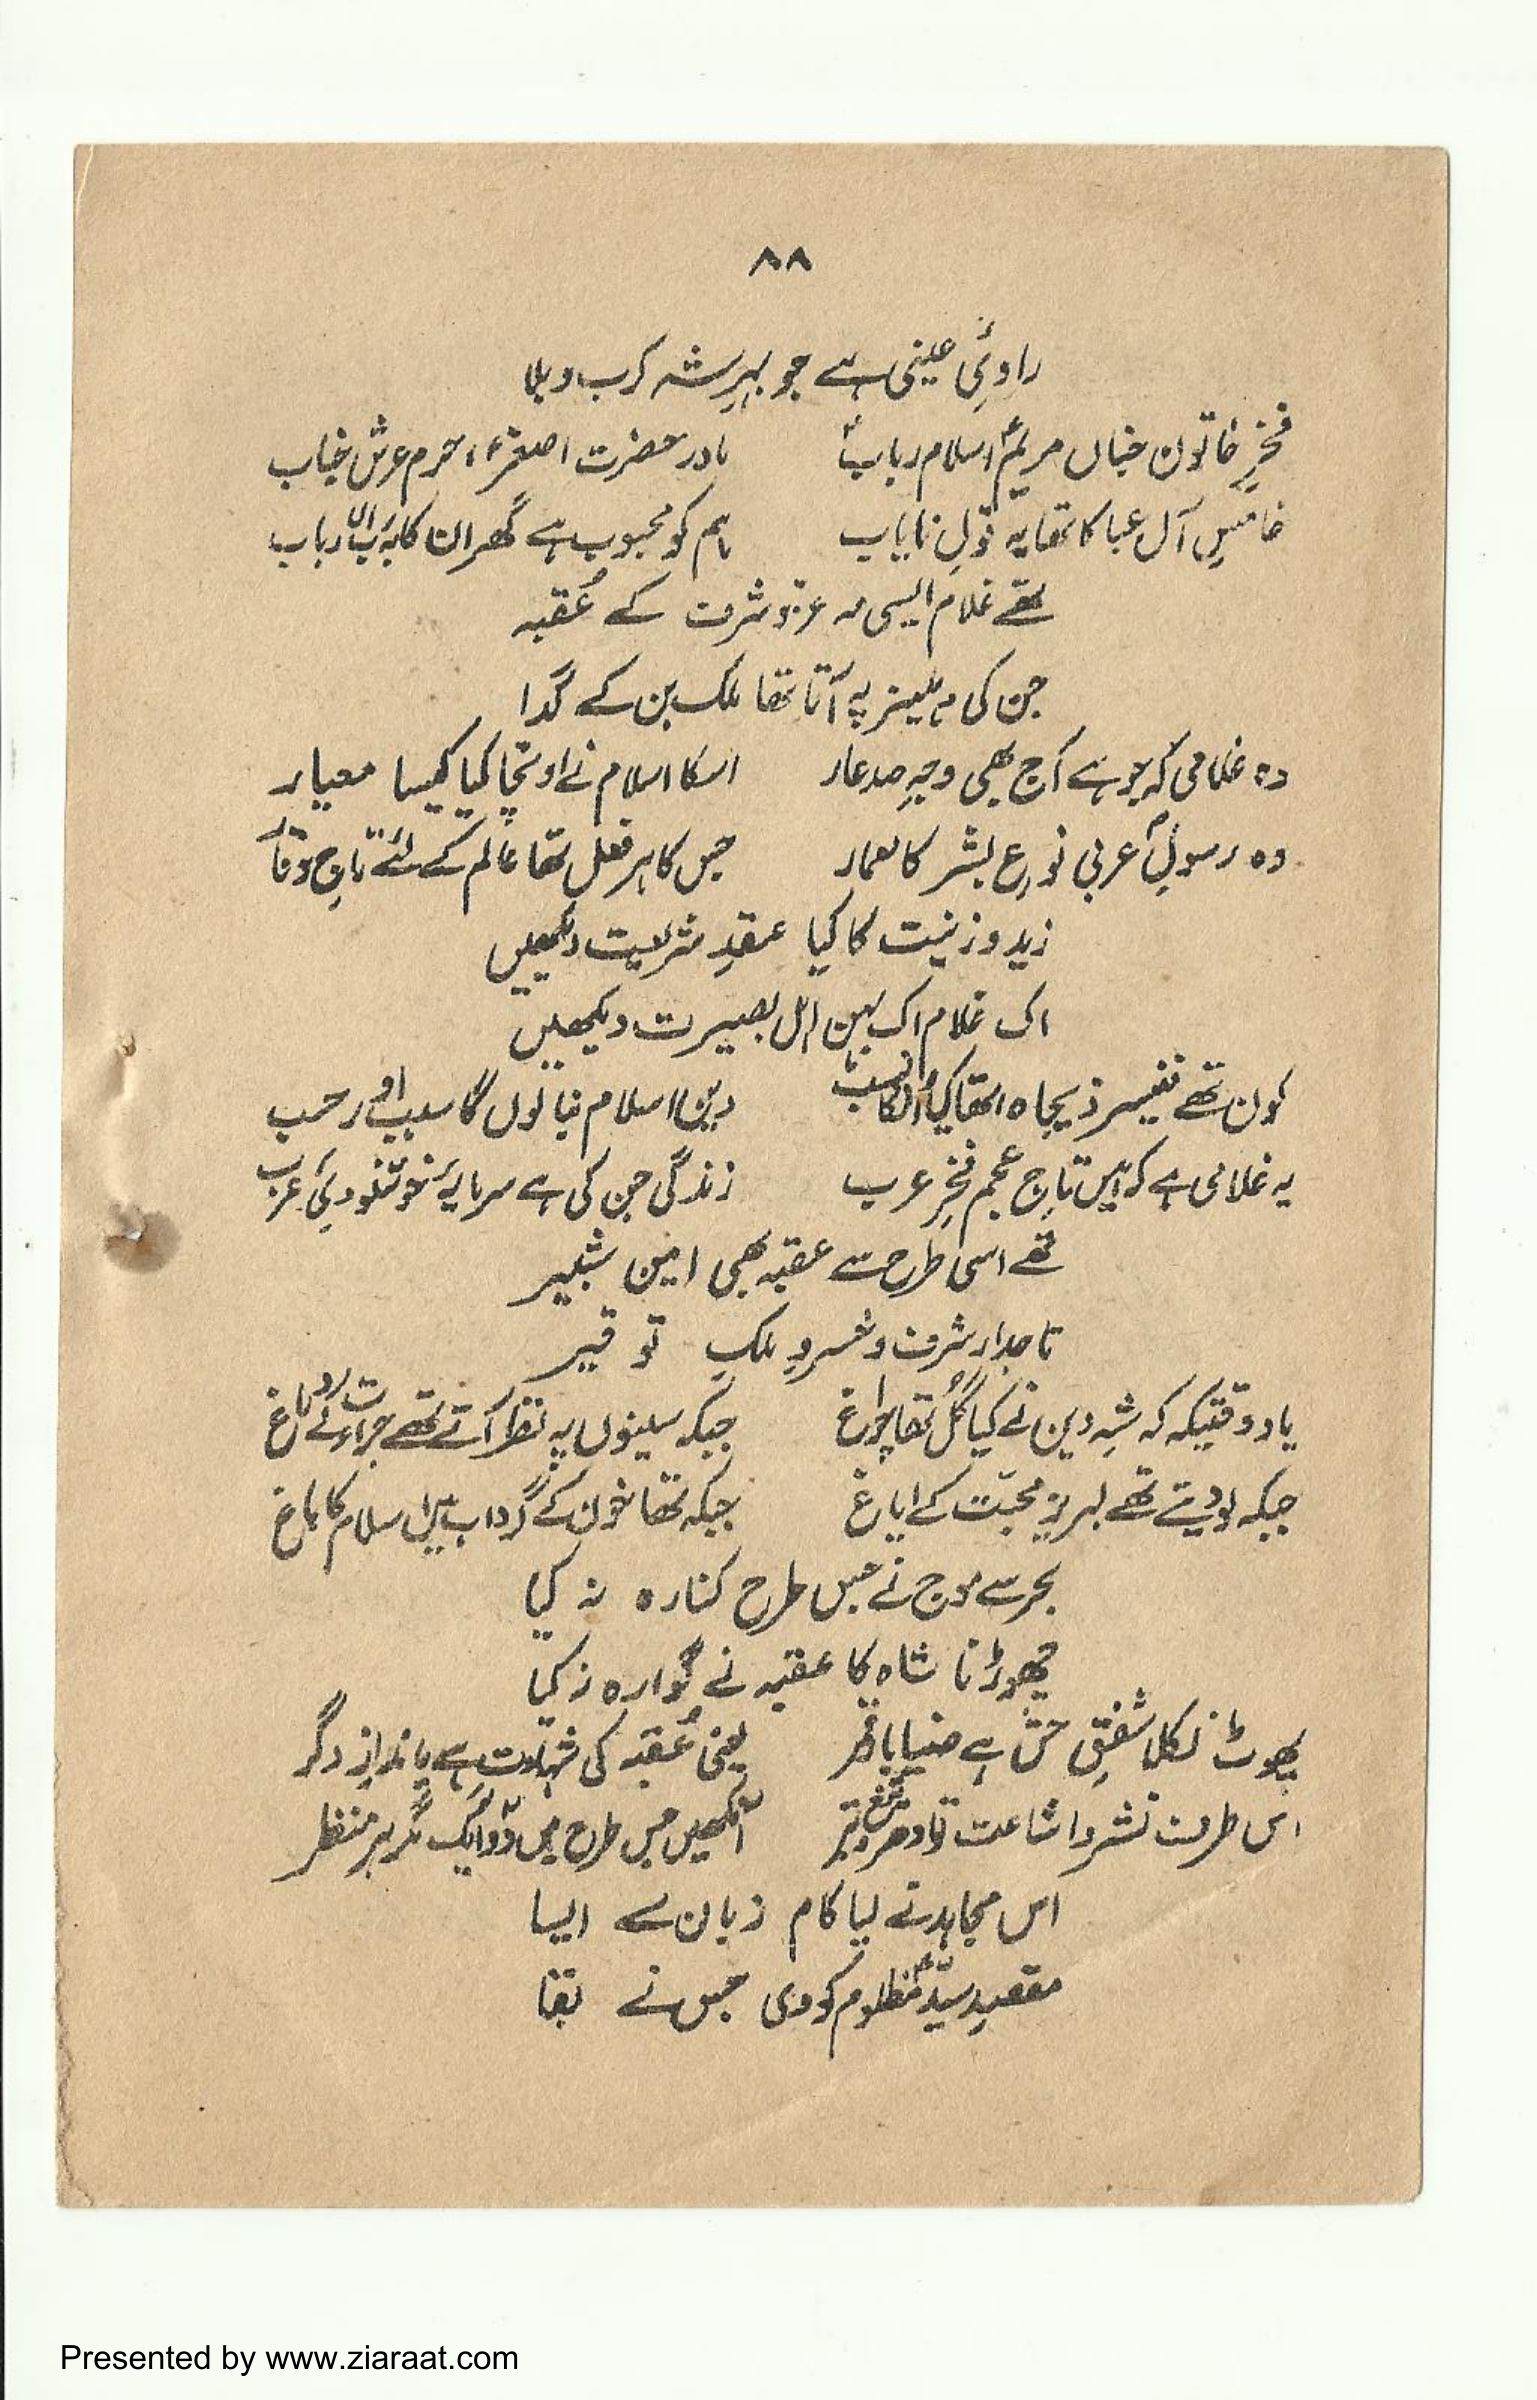 ۸۸
راویٔ عینی ہے جو بہرِ شہ کرب و بلا
فخرِ خاتون جناں مریمؑ اسلام ربابؑ مادر حضرت اصغرؑ، حرم عرش جناب
خامسِ آل عبا کا تھا یہ قولِ نایاب ہم کو محبوب ہے گھر ان کا بہ رب الارباب
تھے غلام ایسی مہ عز و شرف کے عُقبہ
جن کی دہلیز پہ آتا تھا ملک بن کے گدا
وہ غلامی کہ جو ہے آج بھی وجہِ صد عار اسکا اسلام نے اونچا کیا کیسا معیار
وہ رسولِؐ عربی نوعِ بشر کا معمار جس کا ہر فعل تھا عالم کے لئے تاجِ وقار
زید و زینت کا کیا عقدِ شریعت دیکھیں
اک غلام اک بہن اہل بصیرت دیکھیں
کون تھے قنبر ذیجاہ تھا کیا اُن کا نسب دین اسلام بنا لوں گا سبب اور حسب
یہ غلامی ہے کہ ہیں تاجِ عجم فخرِ عرب زندگی جن کی ہے سرمایۂ خوشنودیٔ رب
تھے اسی طرح سے عقبہ بھی امین شبیر
تاجدار شرف و خسروِ ملکِ توقیر
یاد وقتیکہ کہ شہِ دین نے کیا گُل تھا چراغ جبکہ سینوں پہ نظر آتے تھے جراءت کے داغ
جبکہ لو دیتے تھے لبریز محبّت کے ایاغ جبکہ تھا خون کے گرداب میں اسلام کا باغ
بحر سے موج نے جس طرح کنارہ نہ کیا
چھوڑنا شاہ کا عقبہ نے گوارہ نہ کیا
پھوٹ نکلا شفقِ حق سے ضیا بار قمر یعنی عُقبہ کی شہادت ہے باندازِ دگر
اس طرف نشر و اشاعت تو ادھر تیغ و تبر آنکھیں جس طرح ہیں دو ایک مگر ہر منظر
اس مجاہد نے لیا کام زبان سے ایسا
مقصدِ سیّدِ مظلومؑ کو دی جس نے بقا
Presented by www.ziaraat.com